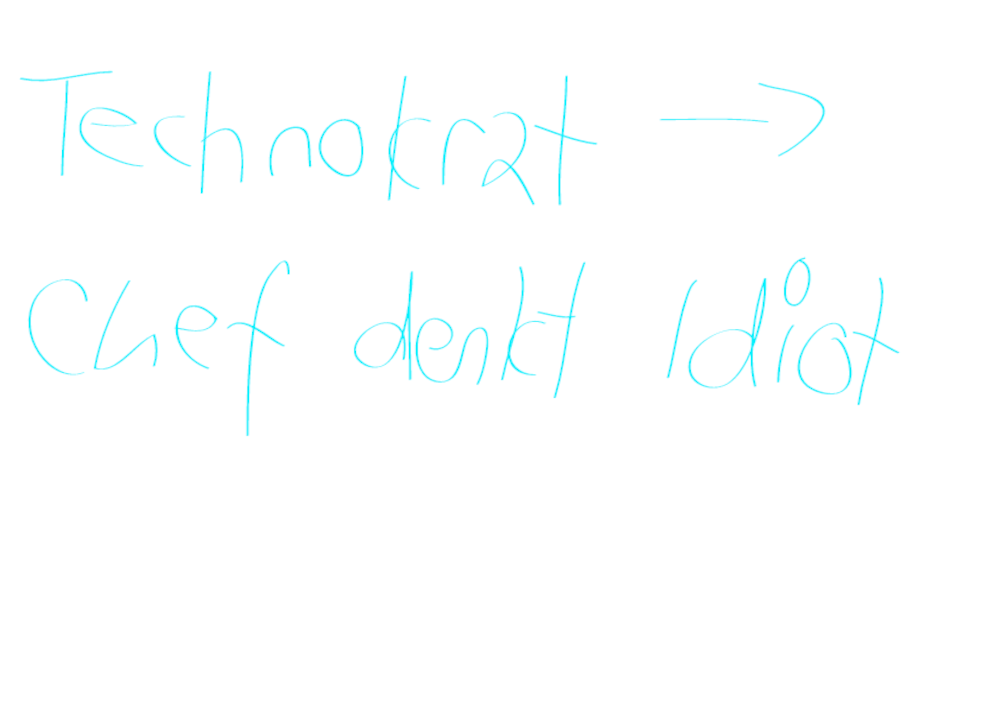 Technokrat →
Chef denkt Idiot